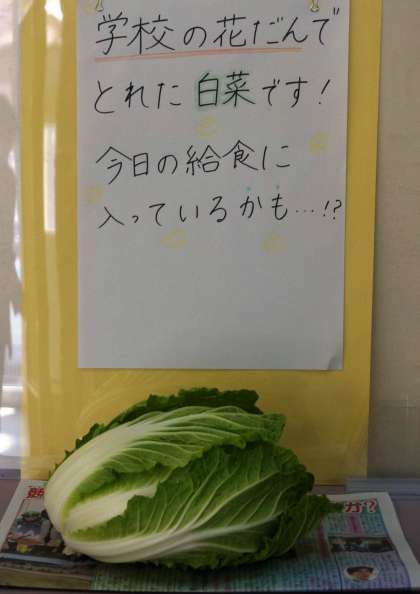 学校の花だんで
とれた白菜です!
今日の給食に
入っているかも…!?
か?